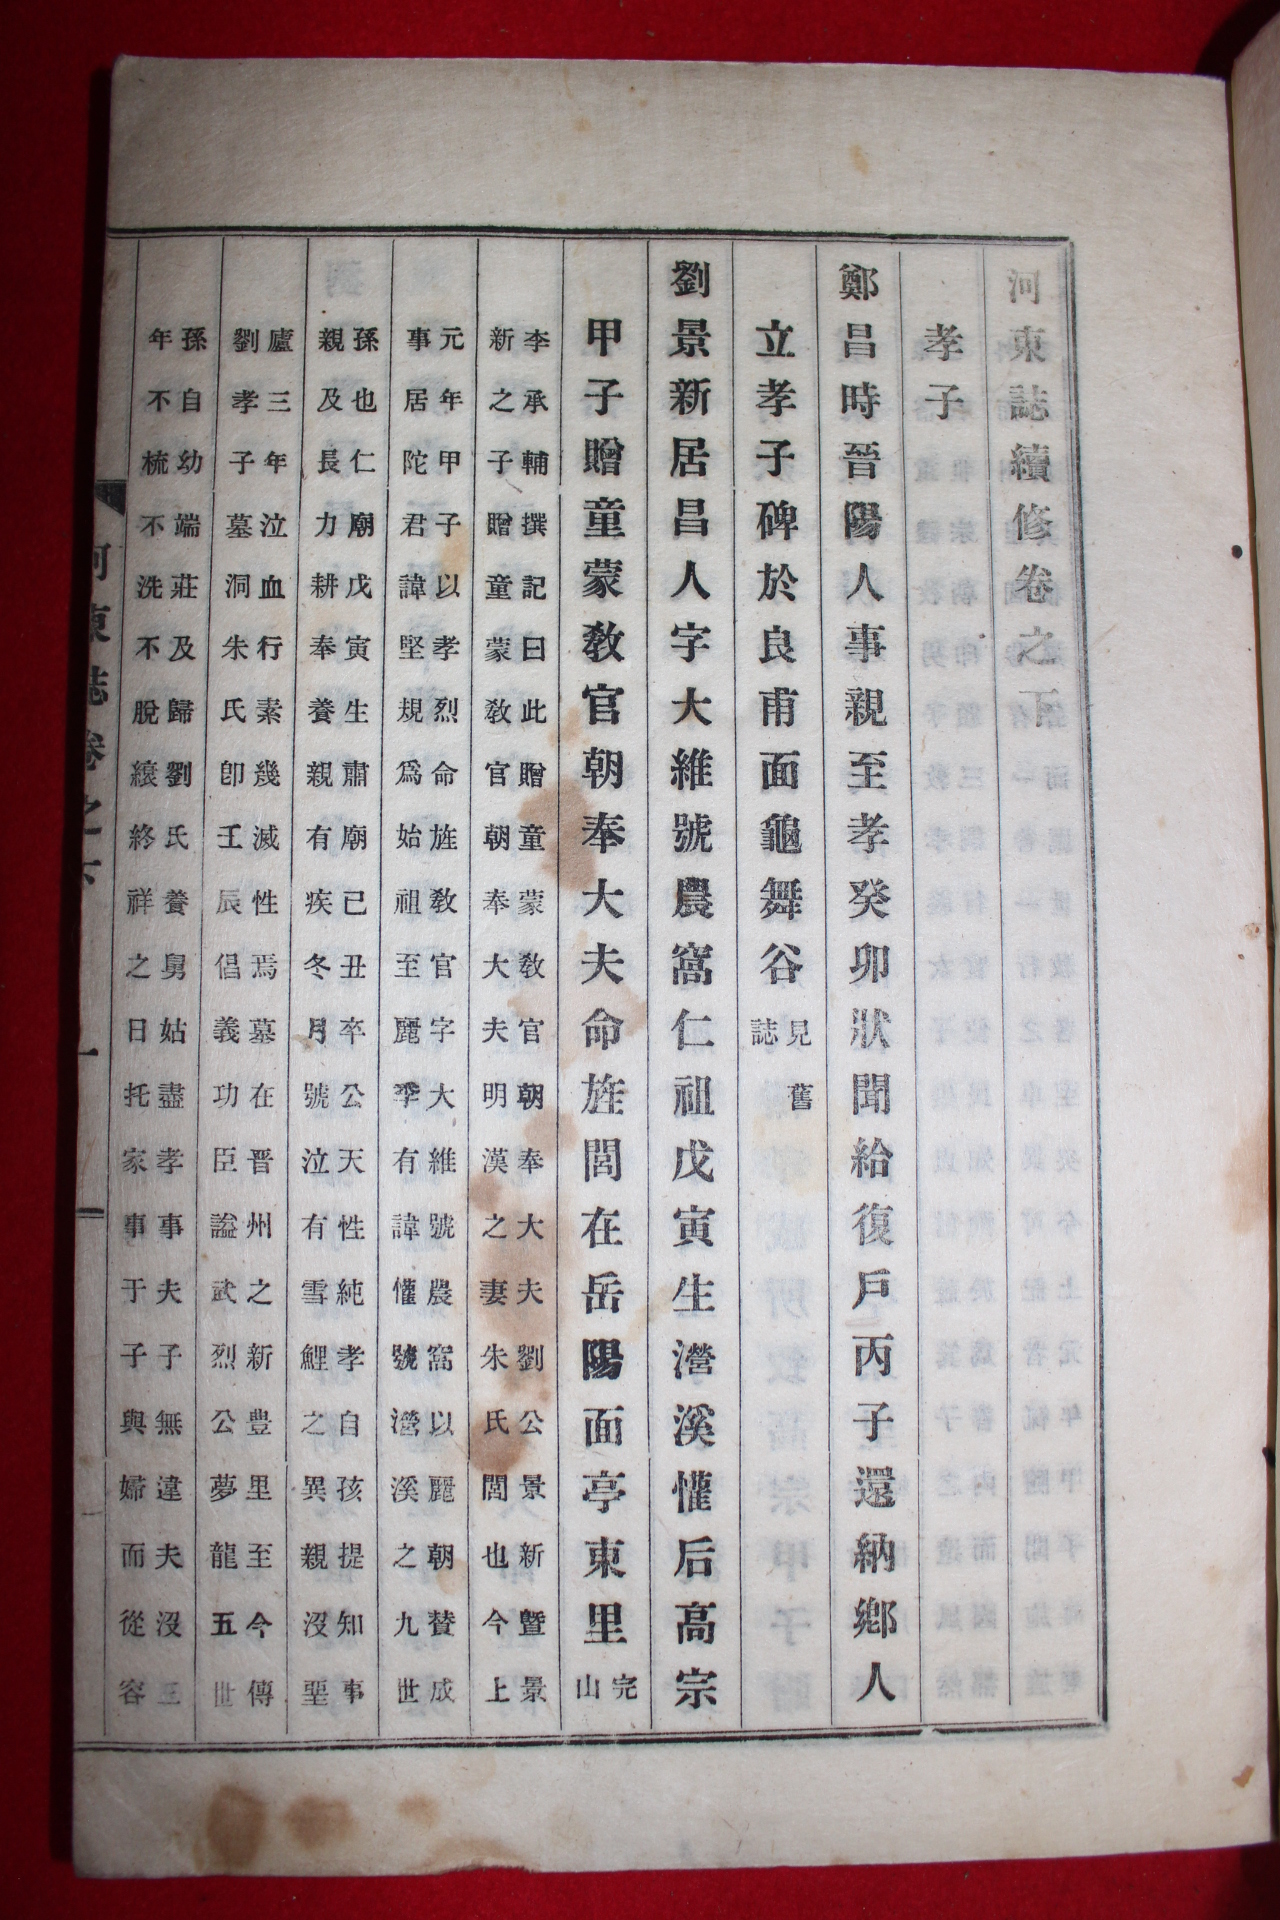 河東誌續修卷之下
孝子
鄭昌時晉陽人事親至孝癸卯狀聞給復戶丙子還納鄕人
立孝子碑於良甫面龜舞谷見舊
誌
劉景新居昌人字大維號農窩仁祖戊寅生灆溪懽后高宗
甲子贈童蒙敎官朝奉大夫命旌閭在岳陽面亭東里完
山
李承輔撰記曰此贈童蒙敎官朝奉大夫劉公景新曁景
新之子贈童蒙敎官朝奉大夫明漢之妻朱氏閭也今上
元年甲子以孝烈命旌敎官字大維號農窩以麗朝贊成
事居陀君諱堅規爲始祖至麗季有諱懽號灆溪之九世
孫也仁廟戊寅生肅廟己丑卒公天性純孝自孩提知事
親及長力耕奉養親有疾冬月號泣有雪鯉之異親沒堊
廬三年泣血行素幾滅性焉墓在晋州之新豊里至今傳
劉孝子墓洞朱氏卽壬辰倡義功臣謚武烈公夢龍五世
孫自幼端莊及歸劉氏養舅姑盡孝事夫子無違夫沒三
年不梳不洗不脫縗終祥之日托家事于子與婦而從容
河東誌卷之下
一